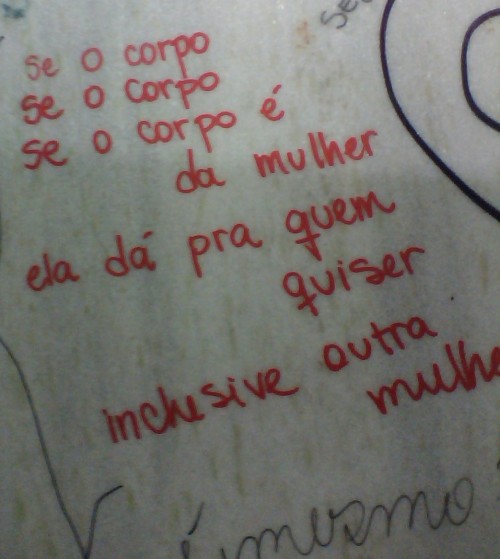 se o corpo
se o corpo
se o corpo é
da mulher
ela dá pra quem
quiser
inclusive outra
mulhe
é mesmo